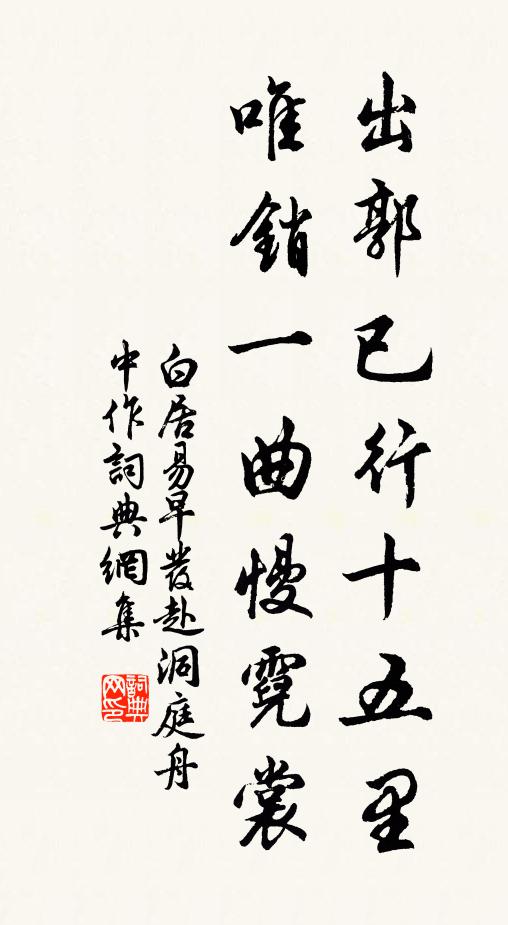 出郭已行十五里
唯銷一曲慢霓裳
白居易早發赴洞庭舟
中作詞典網集
詞典
网印